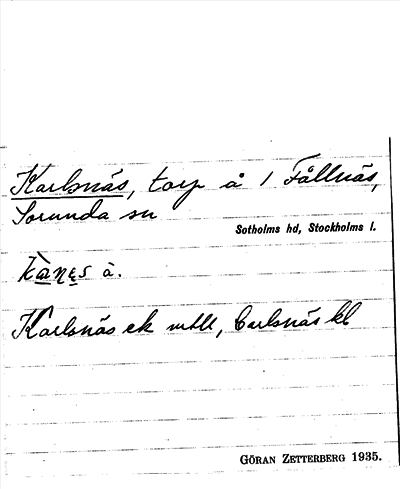 Karlsnäs, torp å 1 Fållnäs,
Sorunda sn
Sotholms hd, Stockholms l.
kànes à.
Karlsnäs ek mtll, Carlsnäs kb
GÖRAN ZETTERBERG 1935.